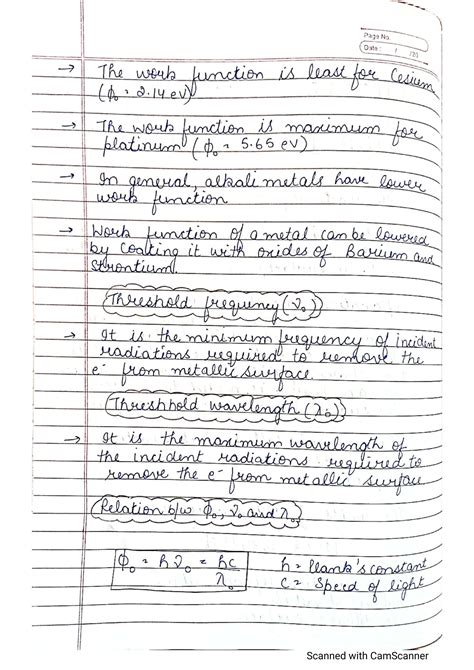 Page No.
Date: / /20
→ The work function is least for Cesium
(ϕ₀ = 2.14 eV)
→ The work function is maximum for
platinum (ϕ₀ = 5.65 eV)
→ In general, alkali metals have lower
work function
→ Work function of a metal can be lowered
by coating it with oxides of Barium and
Strontium.
Threshold frequency (ν₀)
→ It is the minimum frequency of incident
radiations required to remove the
e⁻ from metallic surface.
Threshhold wavelength (λ₀)
→ It is the maximum wavelength of
the incident radiations required to
remove the e⁻ from metallic surface
Relation b/w ϕ₀, ν₀ and λ₀
ϕ₀ = hν₀ = hc/λ₀ h = Plank's constant
c = Speed of light
Scanned with CamScanner